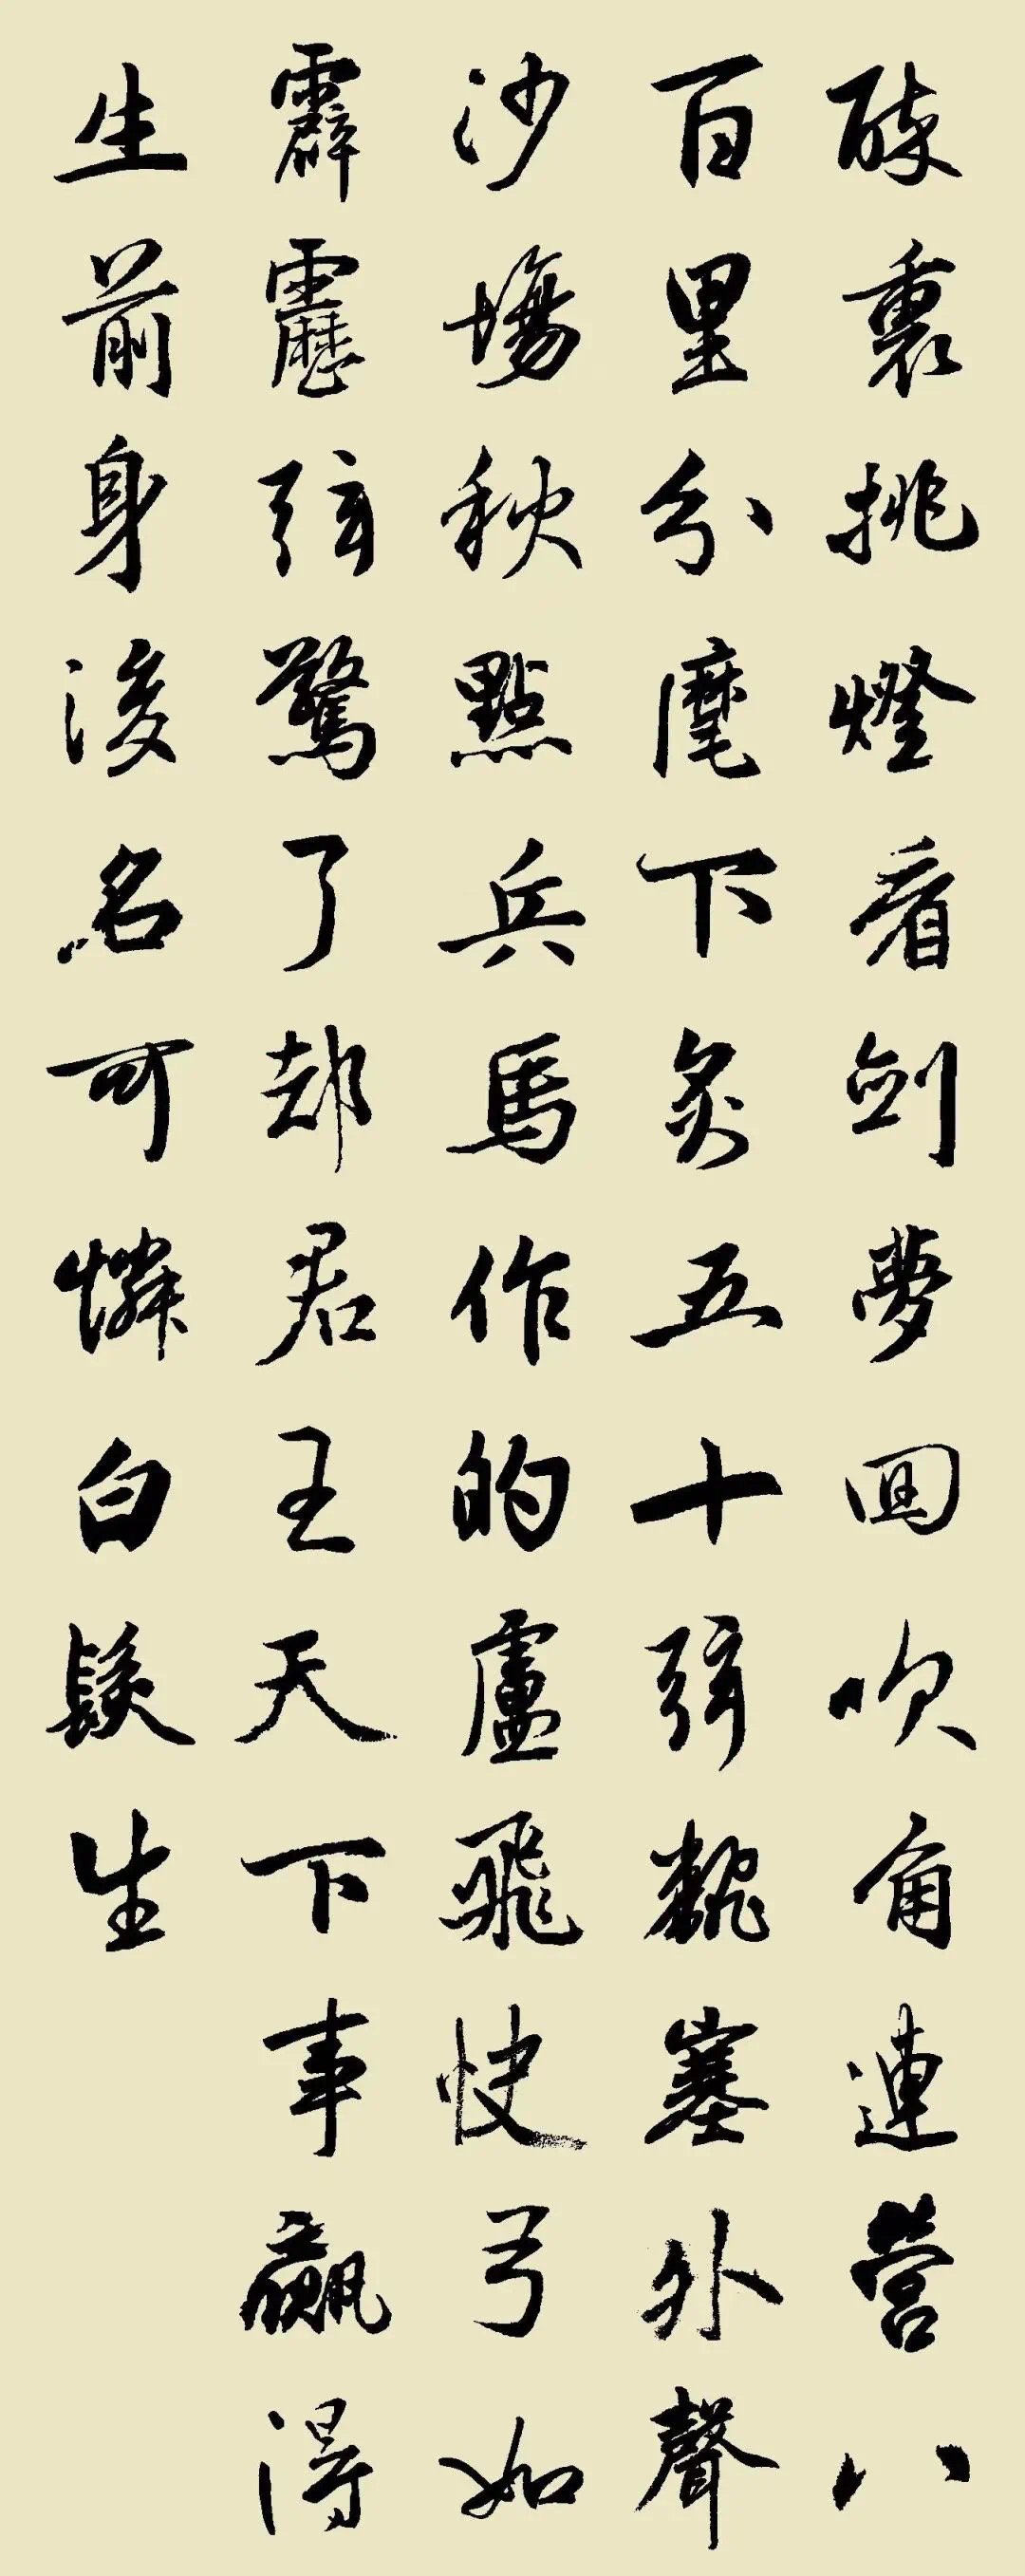 醉裏挑燈看劍夢回吹角連營八
百里分麾下炙五十弦翻塞外聲
沙場秋點兵馬作的盧飛快弓如
霹靂弦驚了却君王天下事贏得
生前身後名可憐白髮生